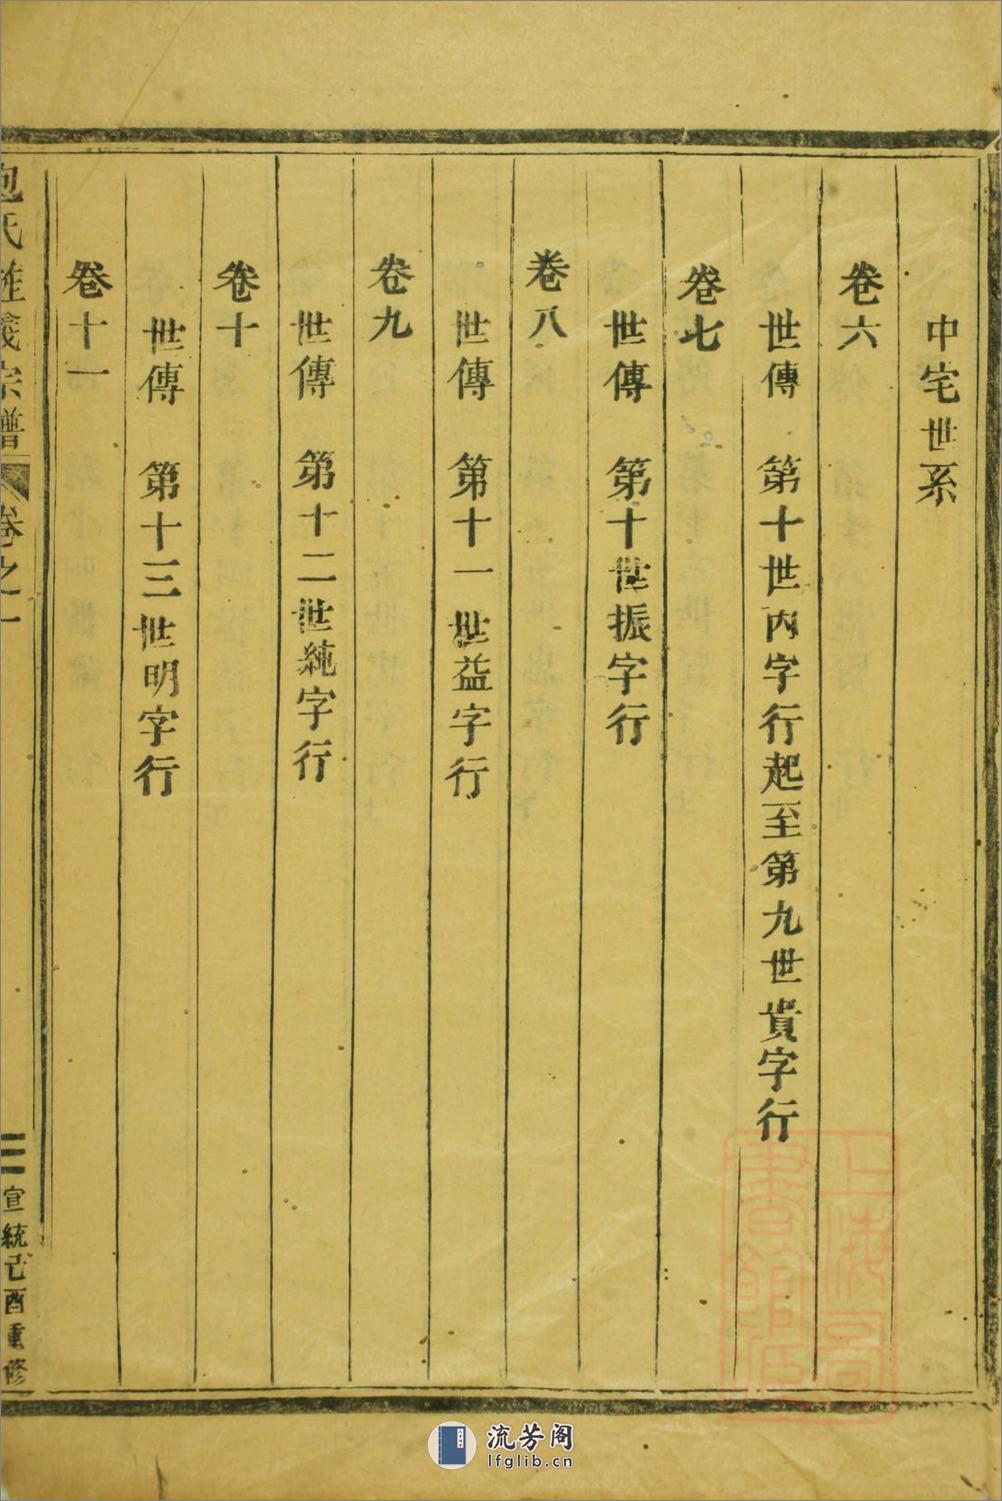 中宅世系
卷六
世傳 第十世内字行起至第九世貴字行
卷七
世傳 第十世振字行
卷八
世傳 第十一世益字行
卷九
世傳 第十二世純字行
卷十
世傳 第十三世明字行
卷十一
包氏旌義宗譜 卷之一
二 宣統己酉重修
上海圖書館藏
流芳阁
lfglib.cn